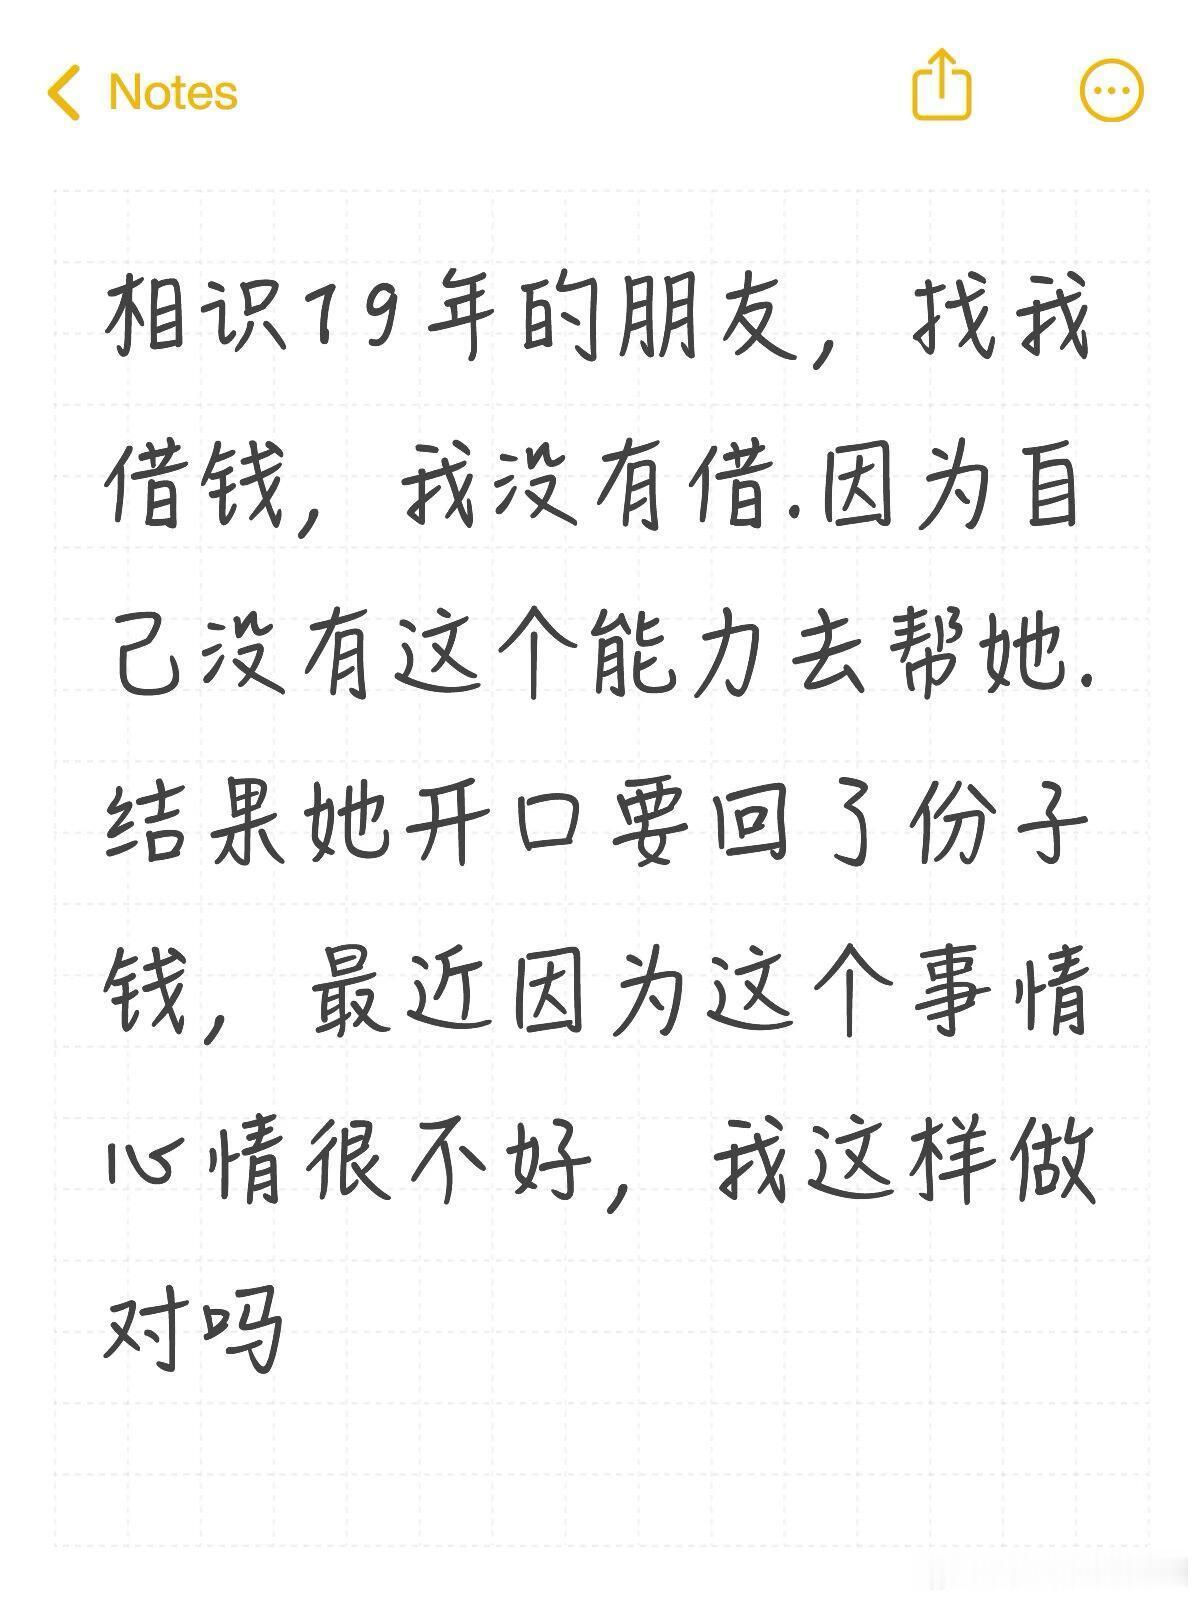 Notes
相识19年的朋友，找我
借钱，我没有借.因为自
己没有这个能力去帮她.
结果她开口要回了份子
钱，最近因为这个事情
心情很不好，我这样做
对吗